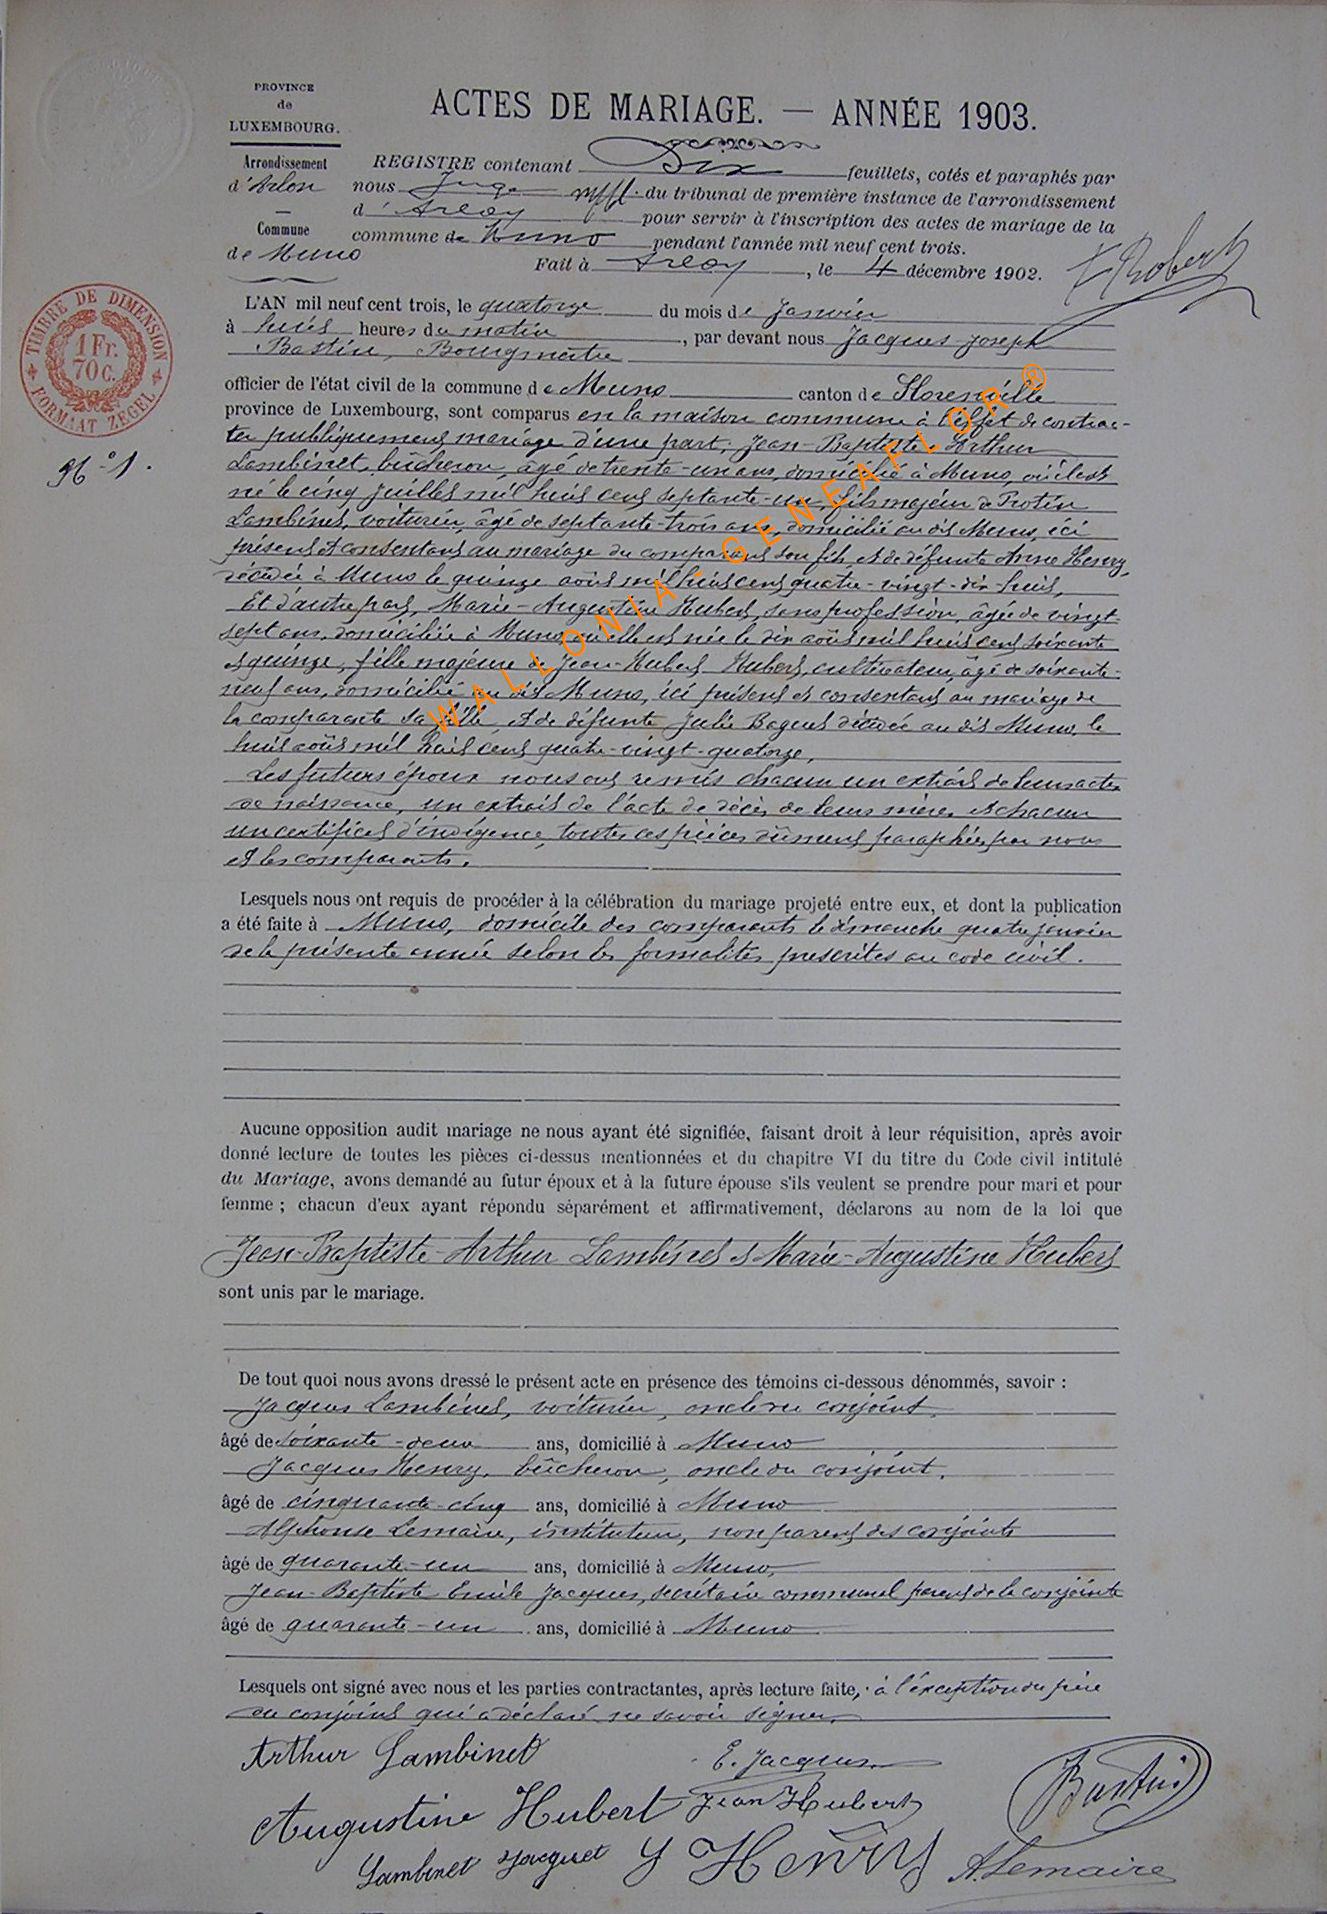 PROVINCE
de
LUXEMBOURG.
ACTES DE MARIAGE. — ANNÉE 1903.
Arrondissement
d'Arlon
Commune
de Muno
REGISTRE contenant Dix feuillets, cotés et paraphés par
nous Juge du tribunal de première instance de l'arrondissement
d' Arlon pour servir à l'inscription des actes de mariage de la
commune de Muno pendant l'année mil neuf cent trois.
Fait à Arlon, le 4 décembre 1902.
Robert
TIMBRE DE DIMENSION
1 Fr.
70 C.
FORMAAT ZEGEL
N° 1.
L'AN mil neuf cent trois, le quatorze du mois de Janvier
à huit heures du matin, par devant nous Jacques Joseph
Bastin, Bourgmestre
officier de l'état civil de la commune de Muno canton de Florenville
province de Luxembourg, sont comparus en la maison commune à l'effet de contrac-
ter publiquement mariage d'une part, Jean-Baptiste-Arthur
Lambinet, bûcheron, âgé de trente-un ans, domicilié à Muno, où il est
né le cinq juillet mil huit cent septante-un, fils majeur de Protin
Lambinet, voiturier, âgé de septante-trois ans, domicilié au dit Muno, ici
présent et consentant au mariage du comparant son fils, et de défunte Anne Henry,
décédée à Muno le quinze août mil huit cent quatre-vingt-dix-huit,
Et d'autre part, Marie-Augustine Hubert, sans profession, âgée de vingt-
sept ans, domiciliée à Muno, où elle est née le dix août mil huit cent soixante
et quinze, fille majeure de Jean-Hubert Hubert, cultivateur, âgé de soixante-
neuf ans, domicilié au dit Muno, ici présent et consentant au mariage de
la comparante sa fille et de défunte Julie Baguet décédée au dit Muno, le
huit août mil huit cent quatre-vingt-quatorze,
Les futurs époux nous ont remis chacun un extrait de leurs actes
de naissance, un extrait de l'acte de décès de leurs mères et chacun
un certificat d'indigence, toutes ces pièces dûment paraphées par nous
et les comparants.
Lesquels nous ont requis de procéder à la célébration du mariage projeté entre eux, et dont la publication
a été faite à Muno, domicile des comparants le dimanche quatre janvier
de la présente année selon les formalités prescrites au code civil.
Aucune opposition audit mariage ne nous ayant été signifiée, faisant droit à leur réquisition, après avoir
donné lecture de toutes les pièces ci-dessus mentionnées et du chapitre VI du titre du Code civil intitulé
du Mariage, avons demandé au futur époux et à la future épouse s'ils veulent se prendre pour mari et pour
femme ; chacun d'eux ayant répondu séparément et affirmativement, déclarons au nom de la loi que
Jean-Baptiste-Arthur Lambinet et Marie-Augustine Hubert
sont unis par le mariage.
De tout quoi nous avons dressé le présent acte en présence des témoins ci-dessous dénommés, savoir :
Jacques Lambinet, voiturier, oncle du conjoint,
âgé de soixante-deux ans, domicilié à Muno
Jacques Henry, bûcheron, oncle du conjoint,
âgé de cinquante-cinq ans, domicilié à Muno
Alphonse Lemaire, instituteur, non parent des conjoints
âgé de quarante-un ans, domicilié à Muno,
Jean-Baptiste Emile Jacques, secrétaire communal parent de la conjointe
âgé de quarante-un ans, domicilié à Muno
Lesquels ont signé avec nous et les parties contractantes, après lecture faite, à l'exception du père
du conjoint qui a déclaré ne savoir signer.
Arthur Lambinet
E. Jacques
Bastin
Augustine Hubert
Jean Hubert
Lambinet Jacquet
J Henry
A. Lemaire
WALLONIA-GENEAFLOR®